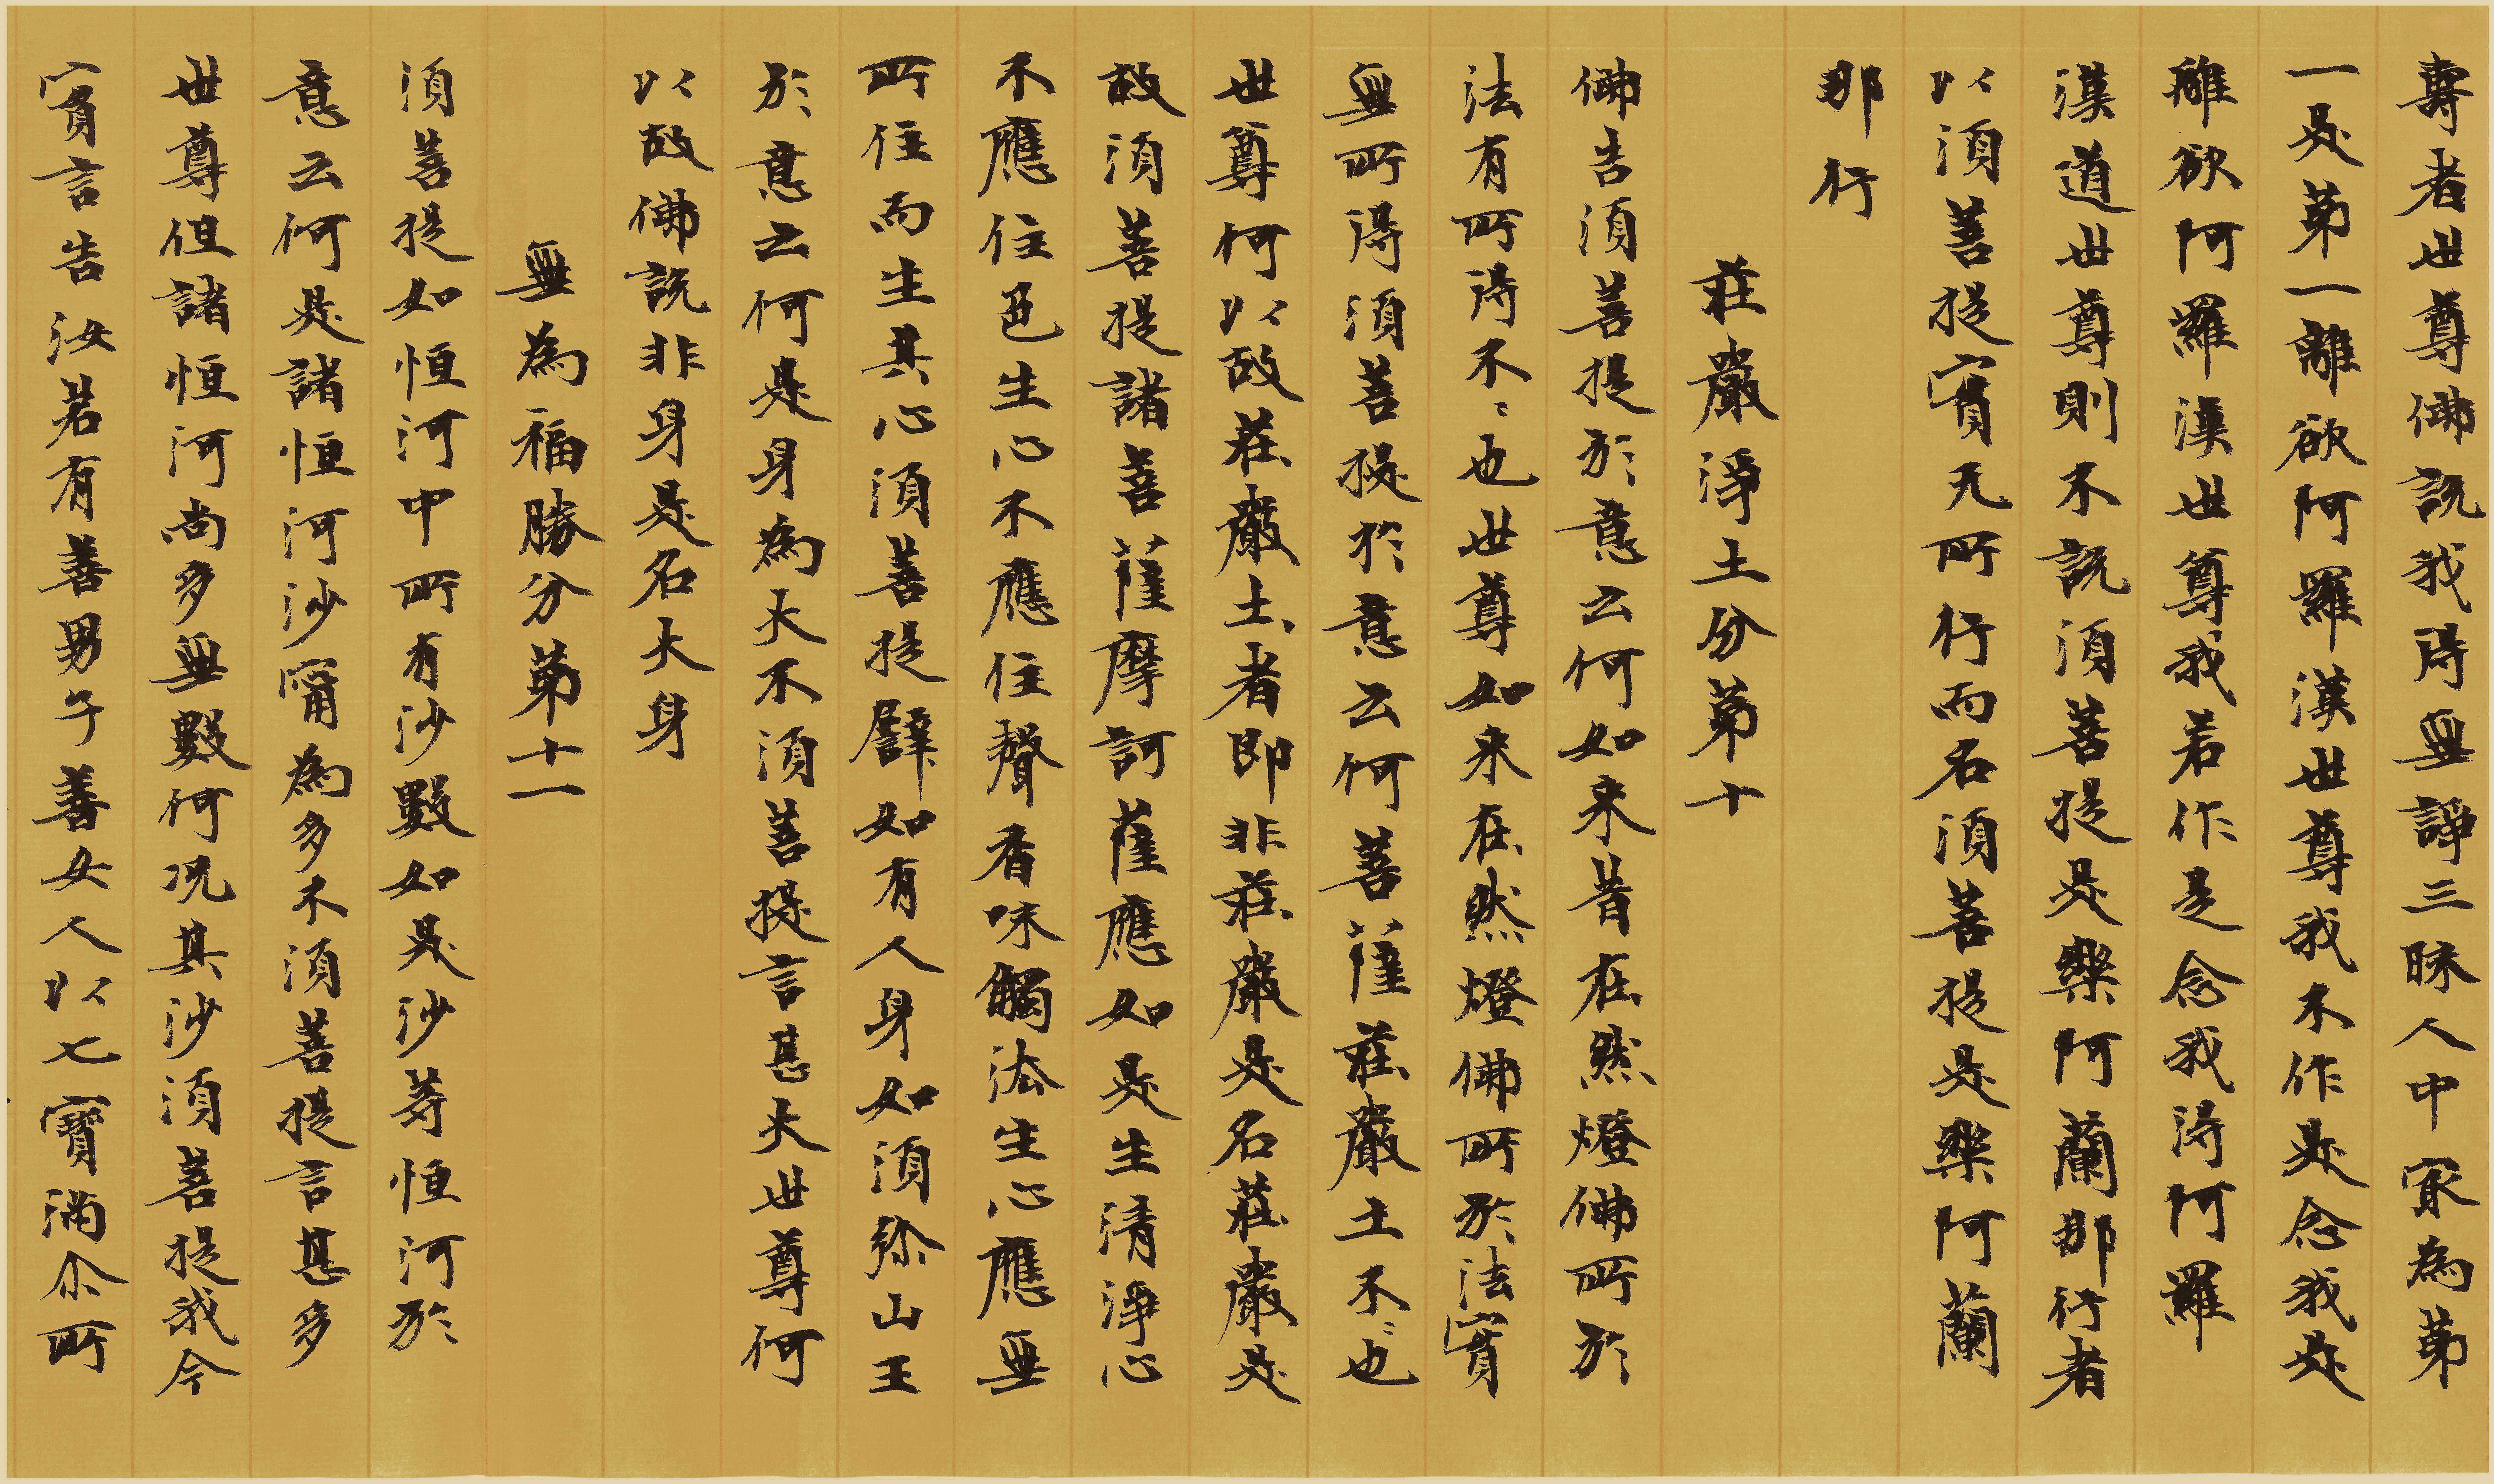 壽者世尊佛說我得無諍三昧人中寂為苐
一是苐一離欲阿羅漢世尊我不作是念我是
離欲阿羅漢世尊我若作是念我得阿羅
漢道世尊則不說湏菩提是樂阿蘭那行者
以湏菩提實无所行而名湏菩提是樂阿蘭
那行
莊嚴淨土分苐十
佛告湏菩提於意云何如来昔在然燈佛所於
法有所得不〻也世尊如来在然燈佛所於法實
無所得湏菩提於意云何菩薩莊嚴土不〻也
世尊何以故莊嚴土者即非莊嚴是名莊嚴是
故湏菩提諸菩薩摩訶薩應如是生清淨心
不應住色生心不應住聲香味觸法生心應無
所住而生其心湏菩提譬如有人身如湏弥山王
於意云何是身為大不湏菩提言甚大世尊何
以故佛說非身是名大身
無為福勝分苐十一
湏菩提如恒河中所有沙數如是沙等恒河於
意云何是諸恒河沙寧為多不湏菩提言甚多
世尊但諸恒河尚多無數何况其沙湏菩提我今
實言告汝若有善男子善女人以七寶滿尒所